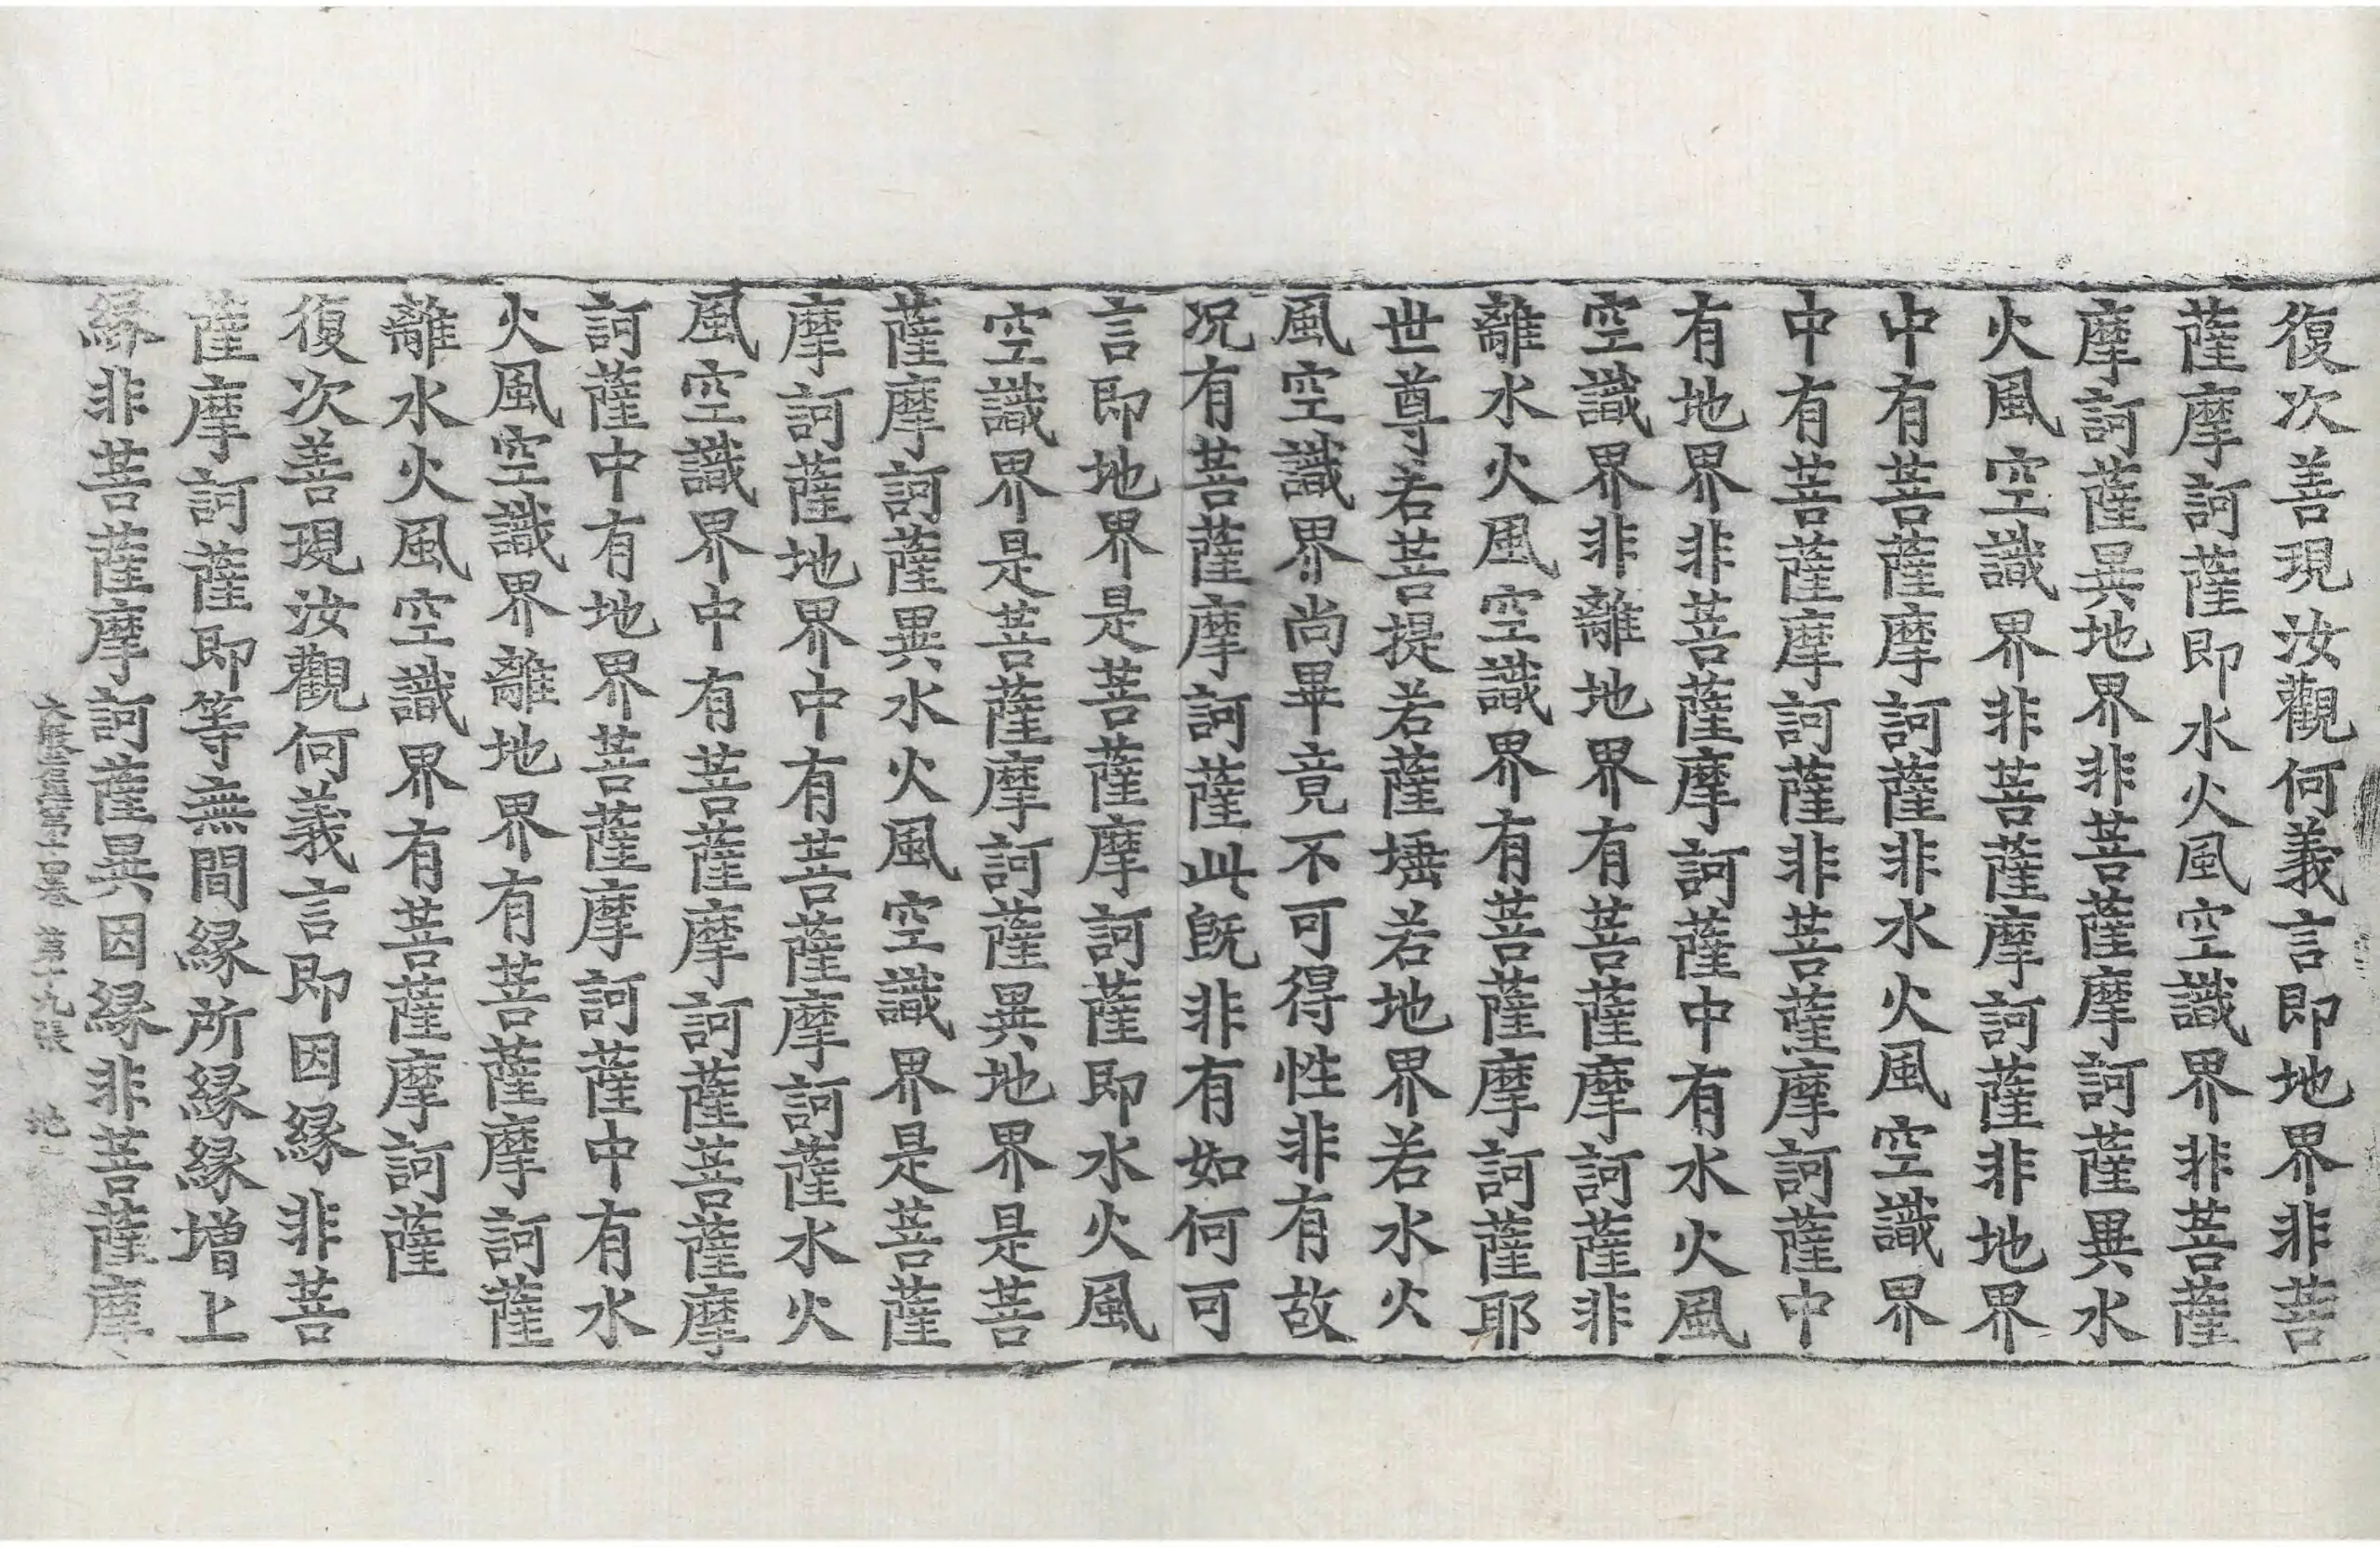 復次善現汝觀何義言即地界非菩
薩摩訶薩即水火風空識界非菩薩
摩訶薩異地界非菩薩摩訶薩異水
火風空識界非菩薩摩訶薩非地界
中有菩薩摩訶薩非水火風空識界
中有菩薩摩訶薩非菩薩摩訶薩中
有地界非菩薩摩訶薩中有水火風
空識界非離地界有菩薩摩訶薩非
離水火風空識界有菩薩摩訶薩耶
世尊若菩提若薩埵若地界若水火
風空識界尚畢竟不可得性非有故
况有菩薩摩訶薩此旣非有如何可
言即地界是菩薩摩訶薩即水火風
空識界是菩薩摩訶薩異地界是菩
薩摩訶薩異水火風空識界是菩薩
摩訶薩地界中有菩薩摩訶薩水火
風空識界中有菩薩摩訶薩菩薩摩
訶薩中有地界菩薩摩訶薩中有水
火風空識界離地界有菩薩摩訶薩
離水火風空識界有菩薩摩訶薩
復次善現汝觀何義言即因緣非菩
薩摩訶薩即等無間緣所緣緣增上
緣非菩薩摩訶薩異因緣非菩薩摩
大 第十九張 地